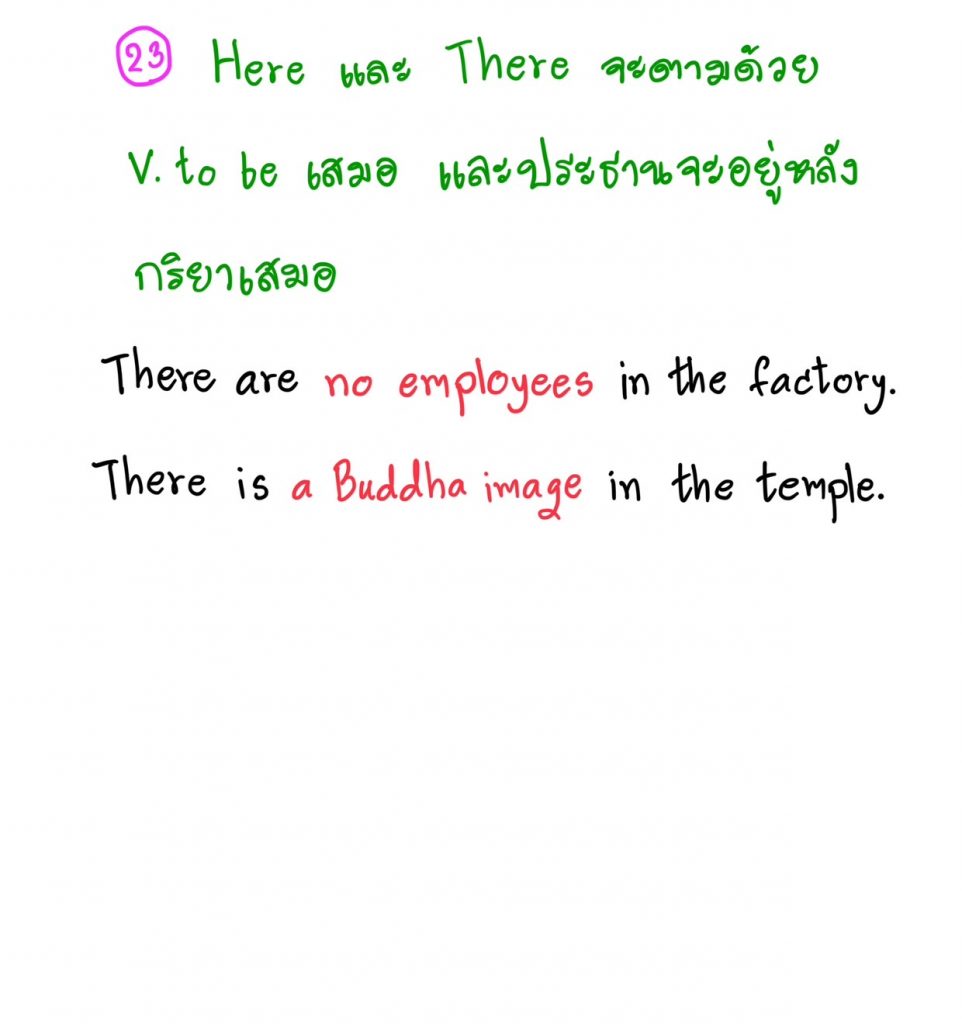 23 Here และ There จะตามด้วย
V. to be เสมอ และประธานจะอยู่หลัง
กริยาเสมอ
There are no employees in the factory.
There is a Buddha image in the temple.